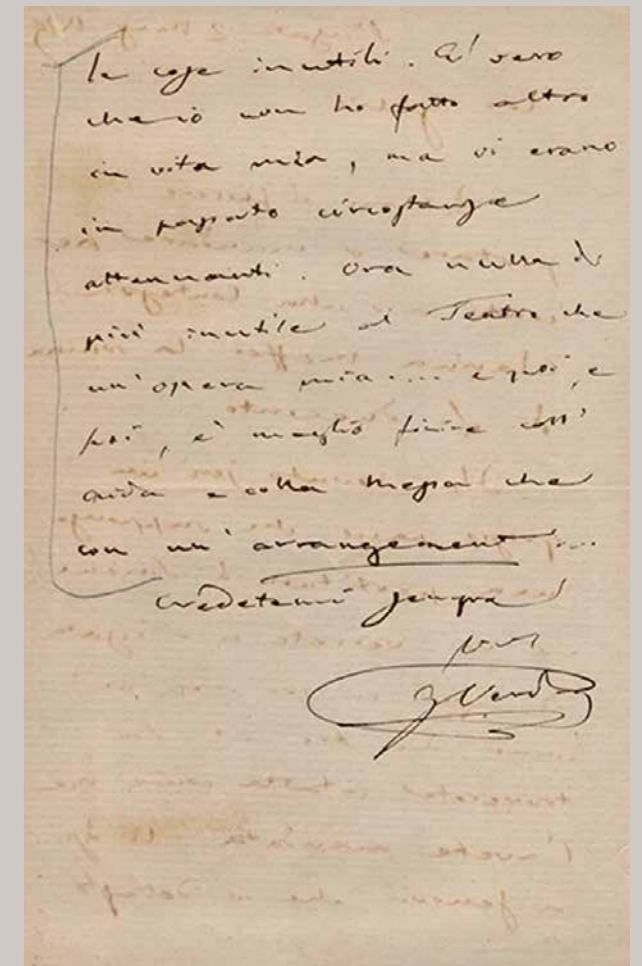 le cose inutili. E' vero
che io non ho fatto altro
in vita mia, ma vi erano
in passato circostanze
attenuanti. Ora nulla di
più inutile al Teatro che
un'opera mia.... e poi, e
poi, è meglio finire coll'
Aida e colla Messa che
con un' arrangement....
Credetemi sempre
G Verdi